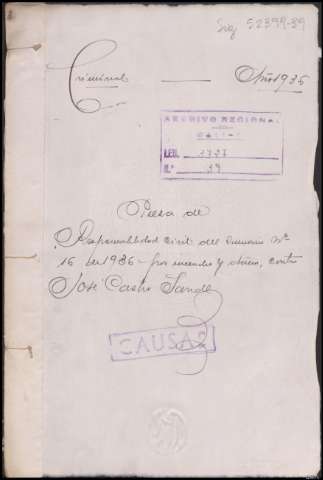 Sig 52399-39
Criminal — Año 1936
ARCHIVO REGIONAL
LEG. 1327
N.° 39
Pieza de
Responsabilidad Civil del Sumario Nº
16 de 1936 - por incendio y otros, contra
José Castro Sande
CAUSAS